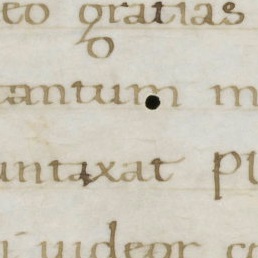 eo gratias
tantum m
untaxat pl
i uideor co